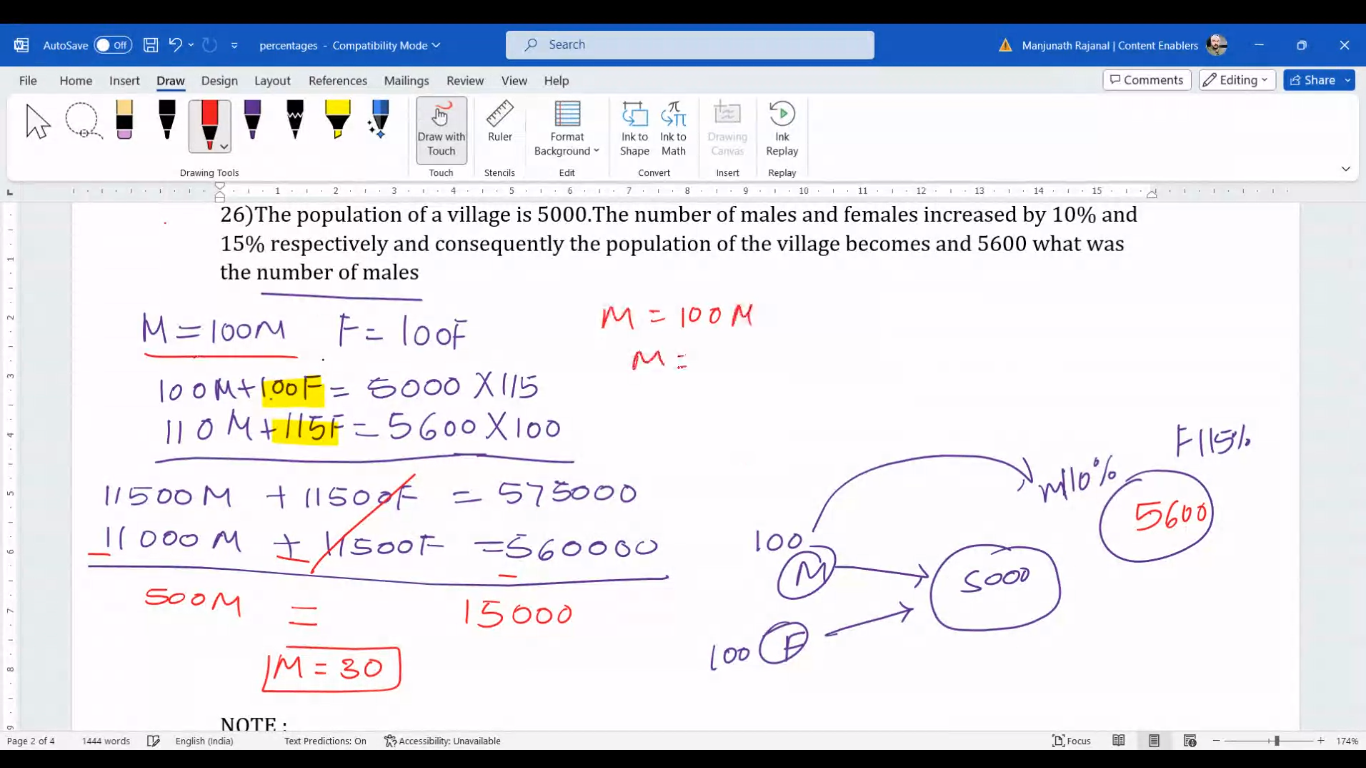 AutoSave Off percentages - Compatibility Mode Search Manjunath Rajanal | Content Enablers
File Home Insert Draw Design Layout References Mailings Review View Help Comments Editing Share
Draw with Touch Ruler Format Background Ink to Shape Ink to Math Drawing Canvas Ink Replay
Drawing Tools Touch Stencils Edit Convert Insert Replay
1 1 2 3 4 5 6 7 8 9 10 11 12 13 14 15
26)The population of a village is 5000.The number of males and females increased by 10% and
15% respectively and consequently the population of the village becomes and 5600 what was
the number of males
M = 100M F = 100F
100M + 100F = 5000 X 115
110M + 115F = 5600 X 100
11500M + 11500F = 575000
11000M + 11500F = 560000
500M = 15000
M = 30
M = 100M
M =
F 115%
M 110%
5600
100
M
5000
100 F
NOTE :
Page 2 of 4 1444 words English (India) Text Predictions: On Accessibility: Unavailable Focus 174%